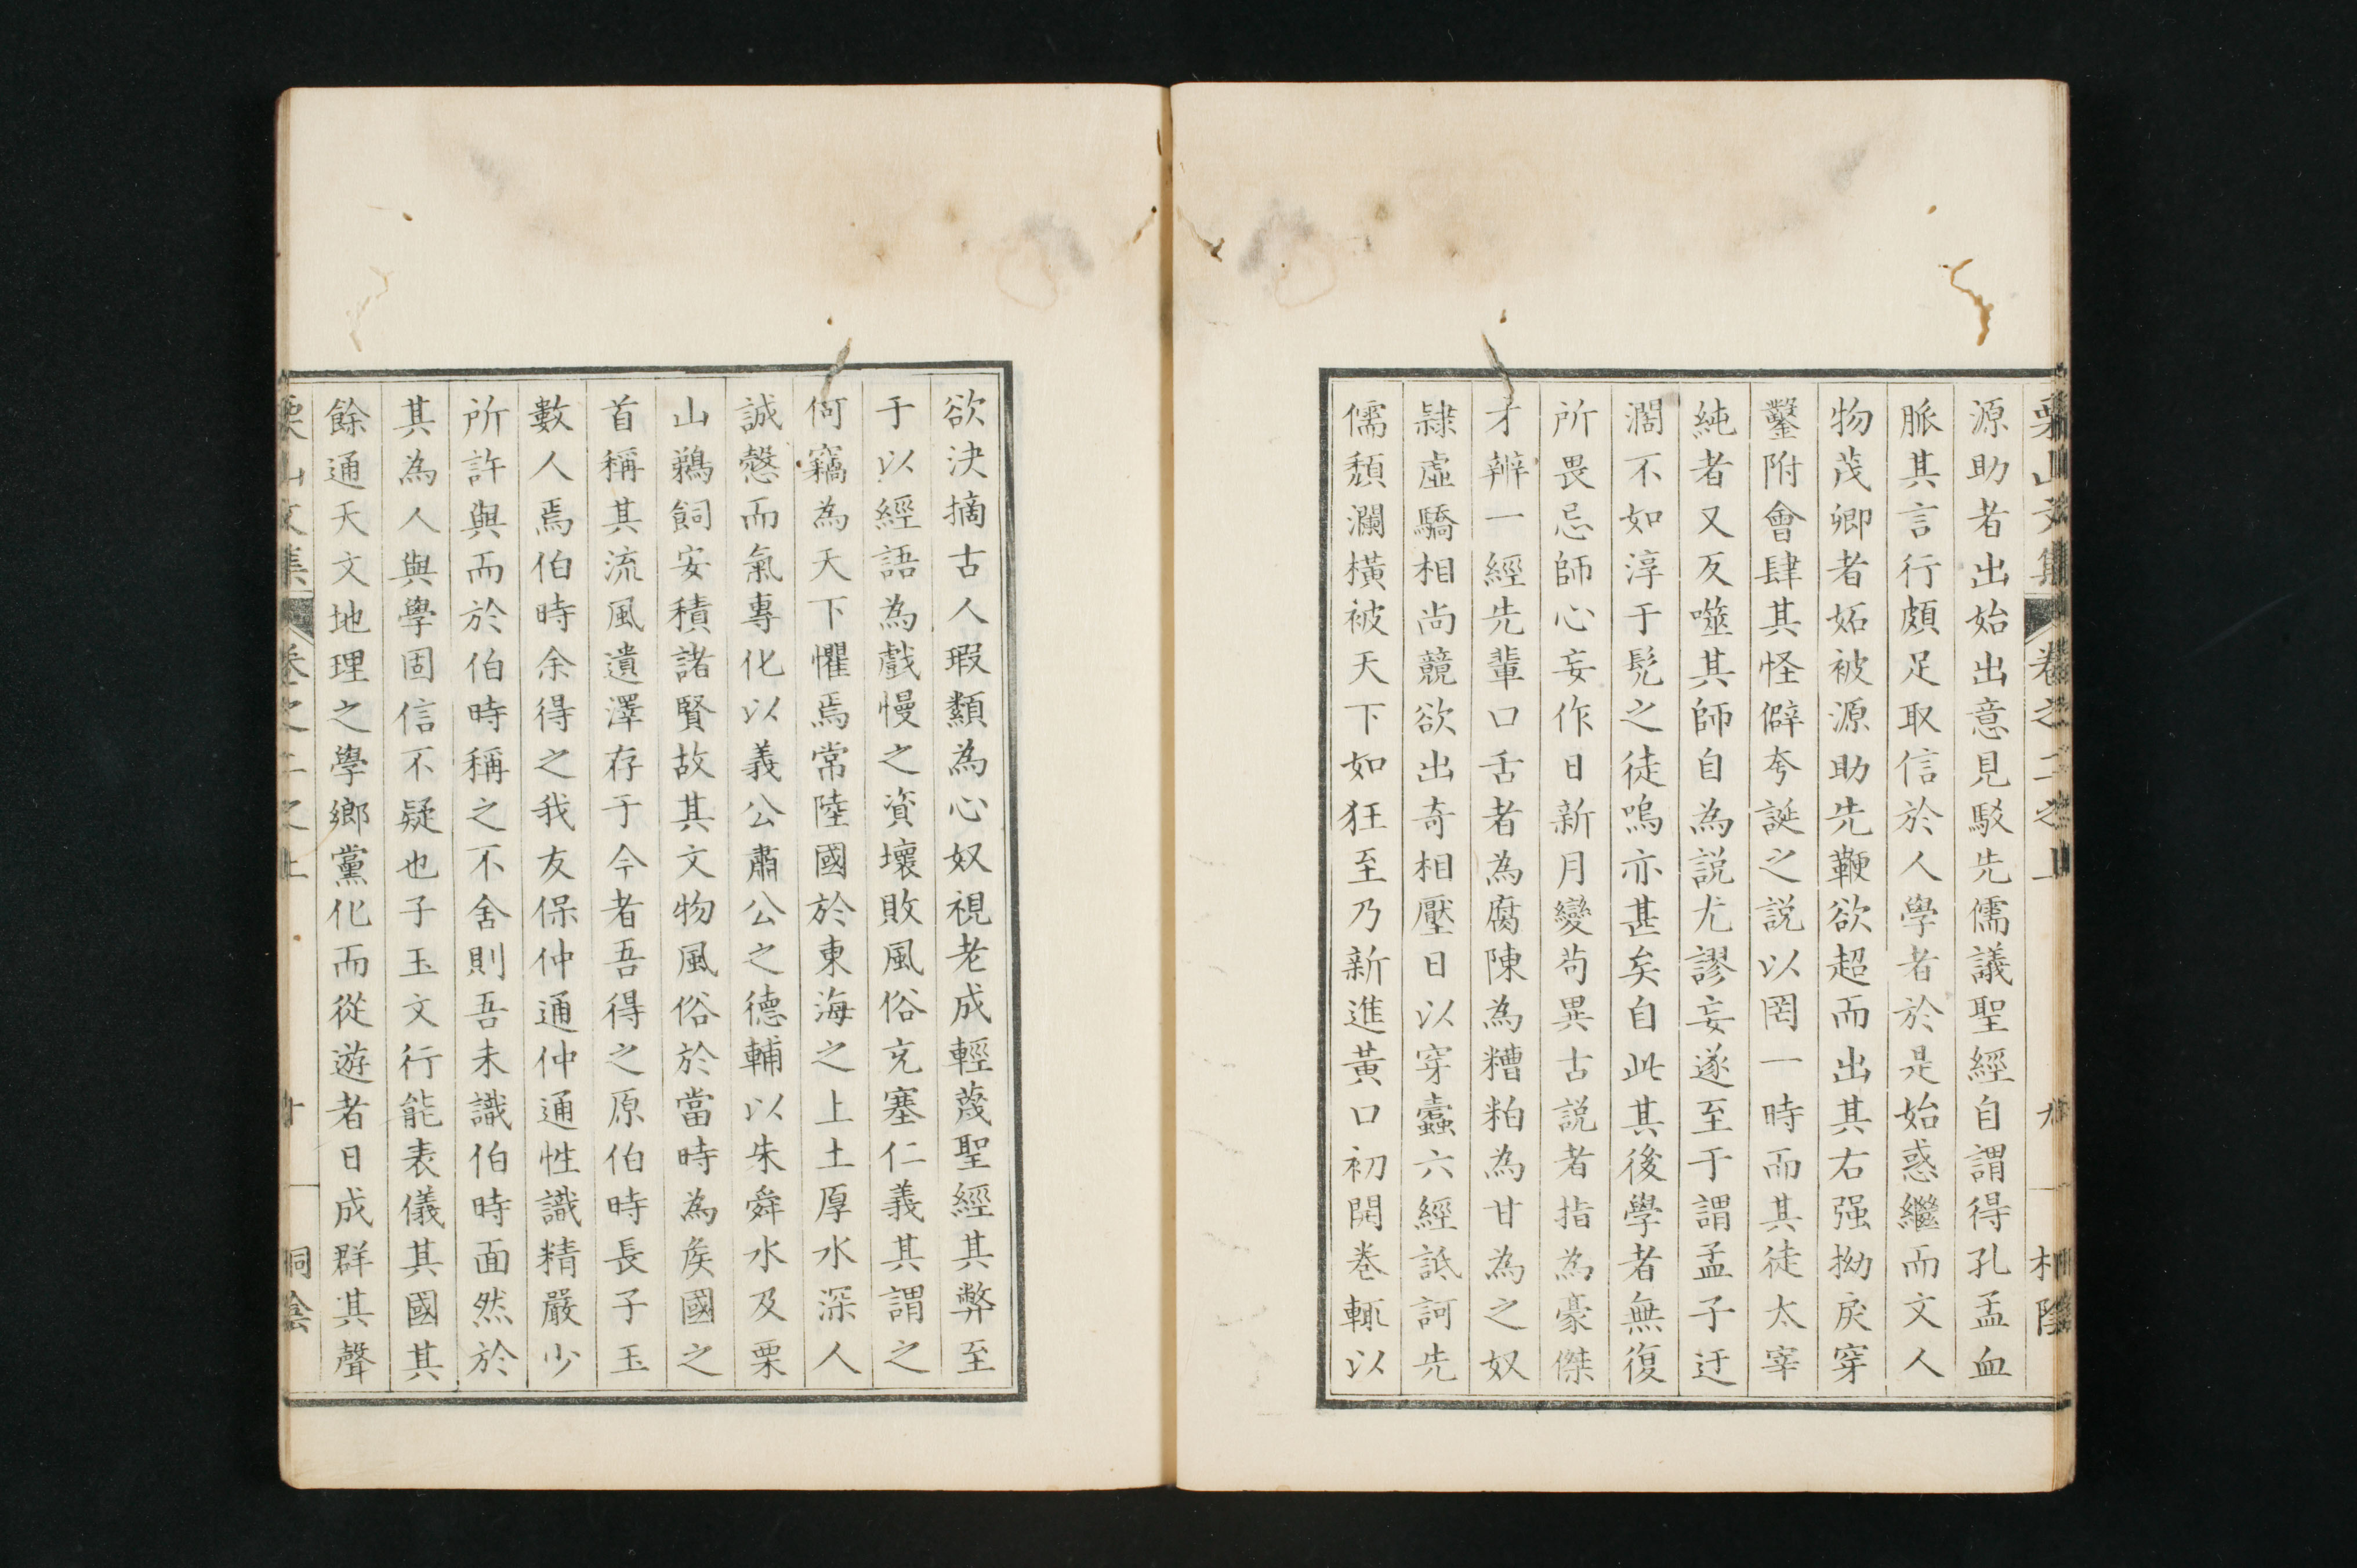 栗山文集 卷之二之上 九 桐陰
源助者出始出意見駁先儒議聖經自謂得孔孟血
脈其言行頗足取信於人學者於是始惑繼而文人
物茂卿者妬被源助先鞭欲超而出其右强拗戾穿
鑿附會肆其怪僻夸誕之説以罔一時而其徒太宰
純者又反噬其師自為説尤謬妄遂至于謂孟子迂
濶不如淳于髡之徒嗚亦甚矣自此其後學者無復
所畏忌師心妄作日新月變苟異古説者指為豪傑
才辨一經先輩口舌者為腐陳為糟粕為甘為之奴
隷虛驕相尚競欲出奇相壓日以穿蠹六經詆訶先
儒頹瀾橫被天下如狂至乃新進黃口初開卷輒以
欲決摘古人瑕纇為心奴視老成輕蔑聖經其弊至
于以經語為戲慢之資壞敗風俗充塞仁義其謂之
何竊為天下懼焉常陸國於東海之上土厚水深人
誠慤而氣專化以義公肅公之德輔以朱舜水及栗
山鵜飼安積諸賢故其文物風俗於當時為矦國之
首稱其流風遺澤存于今者吾得之原伯時長子玉
數人焉伯時余得之我友保仲通仲通性識精嚴少
所許與而於伯時稱之不舍則吾未識伯時面然於
其為人與學固信不疑也子玉文行能表儀其國其
餘通天文地理之學鄉黨化而從遊者日成群其聲
栗山文集 卷之二之上 十 桐陰